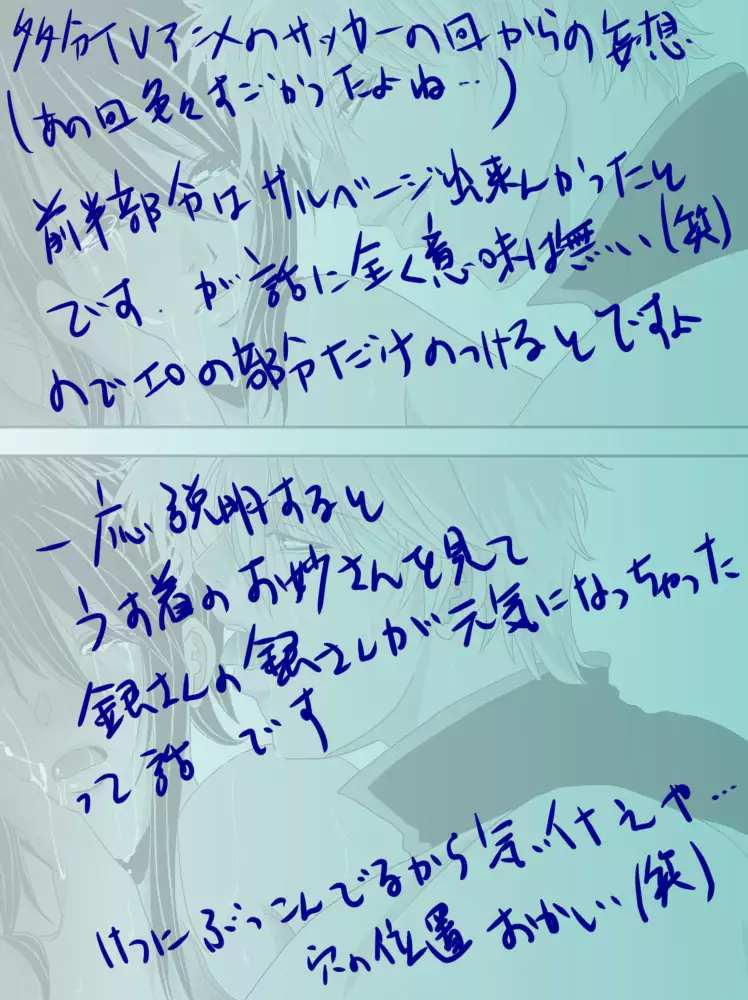 多分TVアニメのサッカーの回からの妄想
(あの回色々すごかったよね…)
前半部分はサルベージ出来んかったと
です. が話に全く意味は無い(笑)
のでエロの部分だけのっけるとですよ
一応説明すると
うす着のお妙さんを見て
銀さんの銀さんが元気になっちゃった
って話です
けつにぶっこんでるから気ぃ付えや…
穴の位置おかしい(笑)